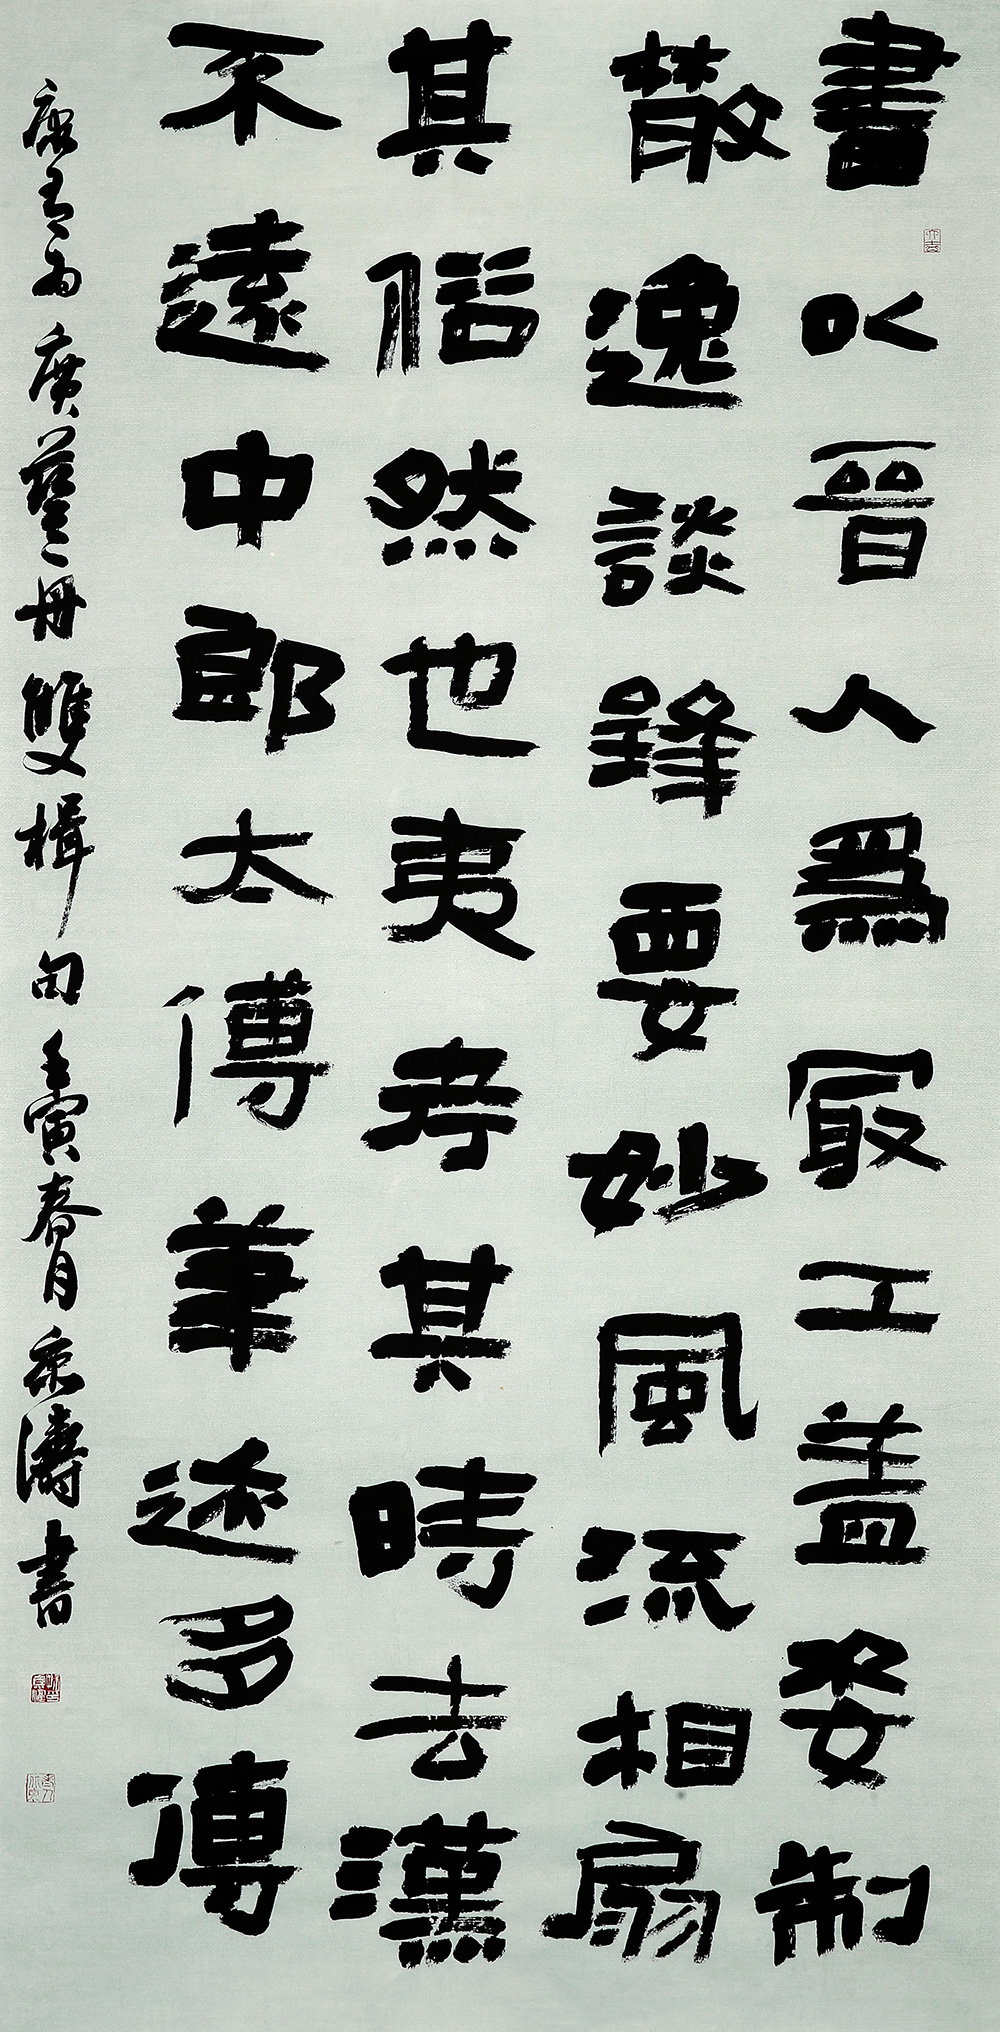 書以晉人爲冣工盖姿制
散逸談鋒要妙風流相扇
其俗然也夷考其時去漢
不遠中郎太傅筆迹多傳
康有为廣藝舟雙楫句壬寅春月京濤書